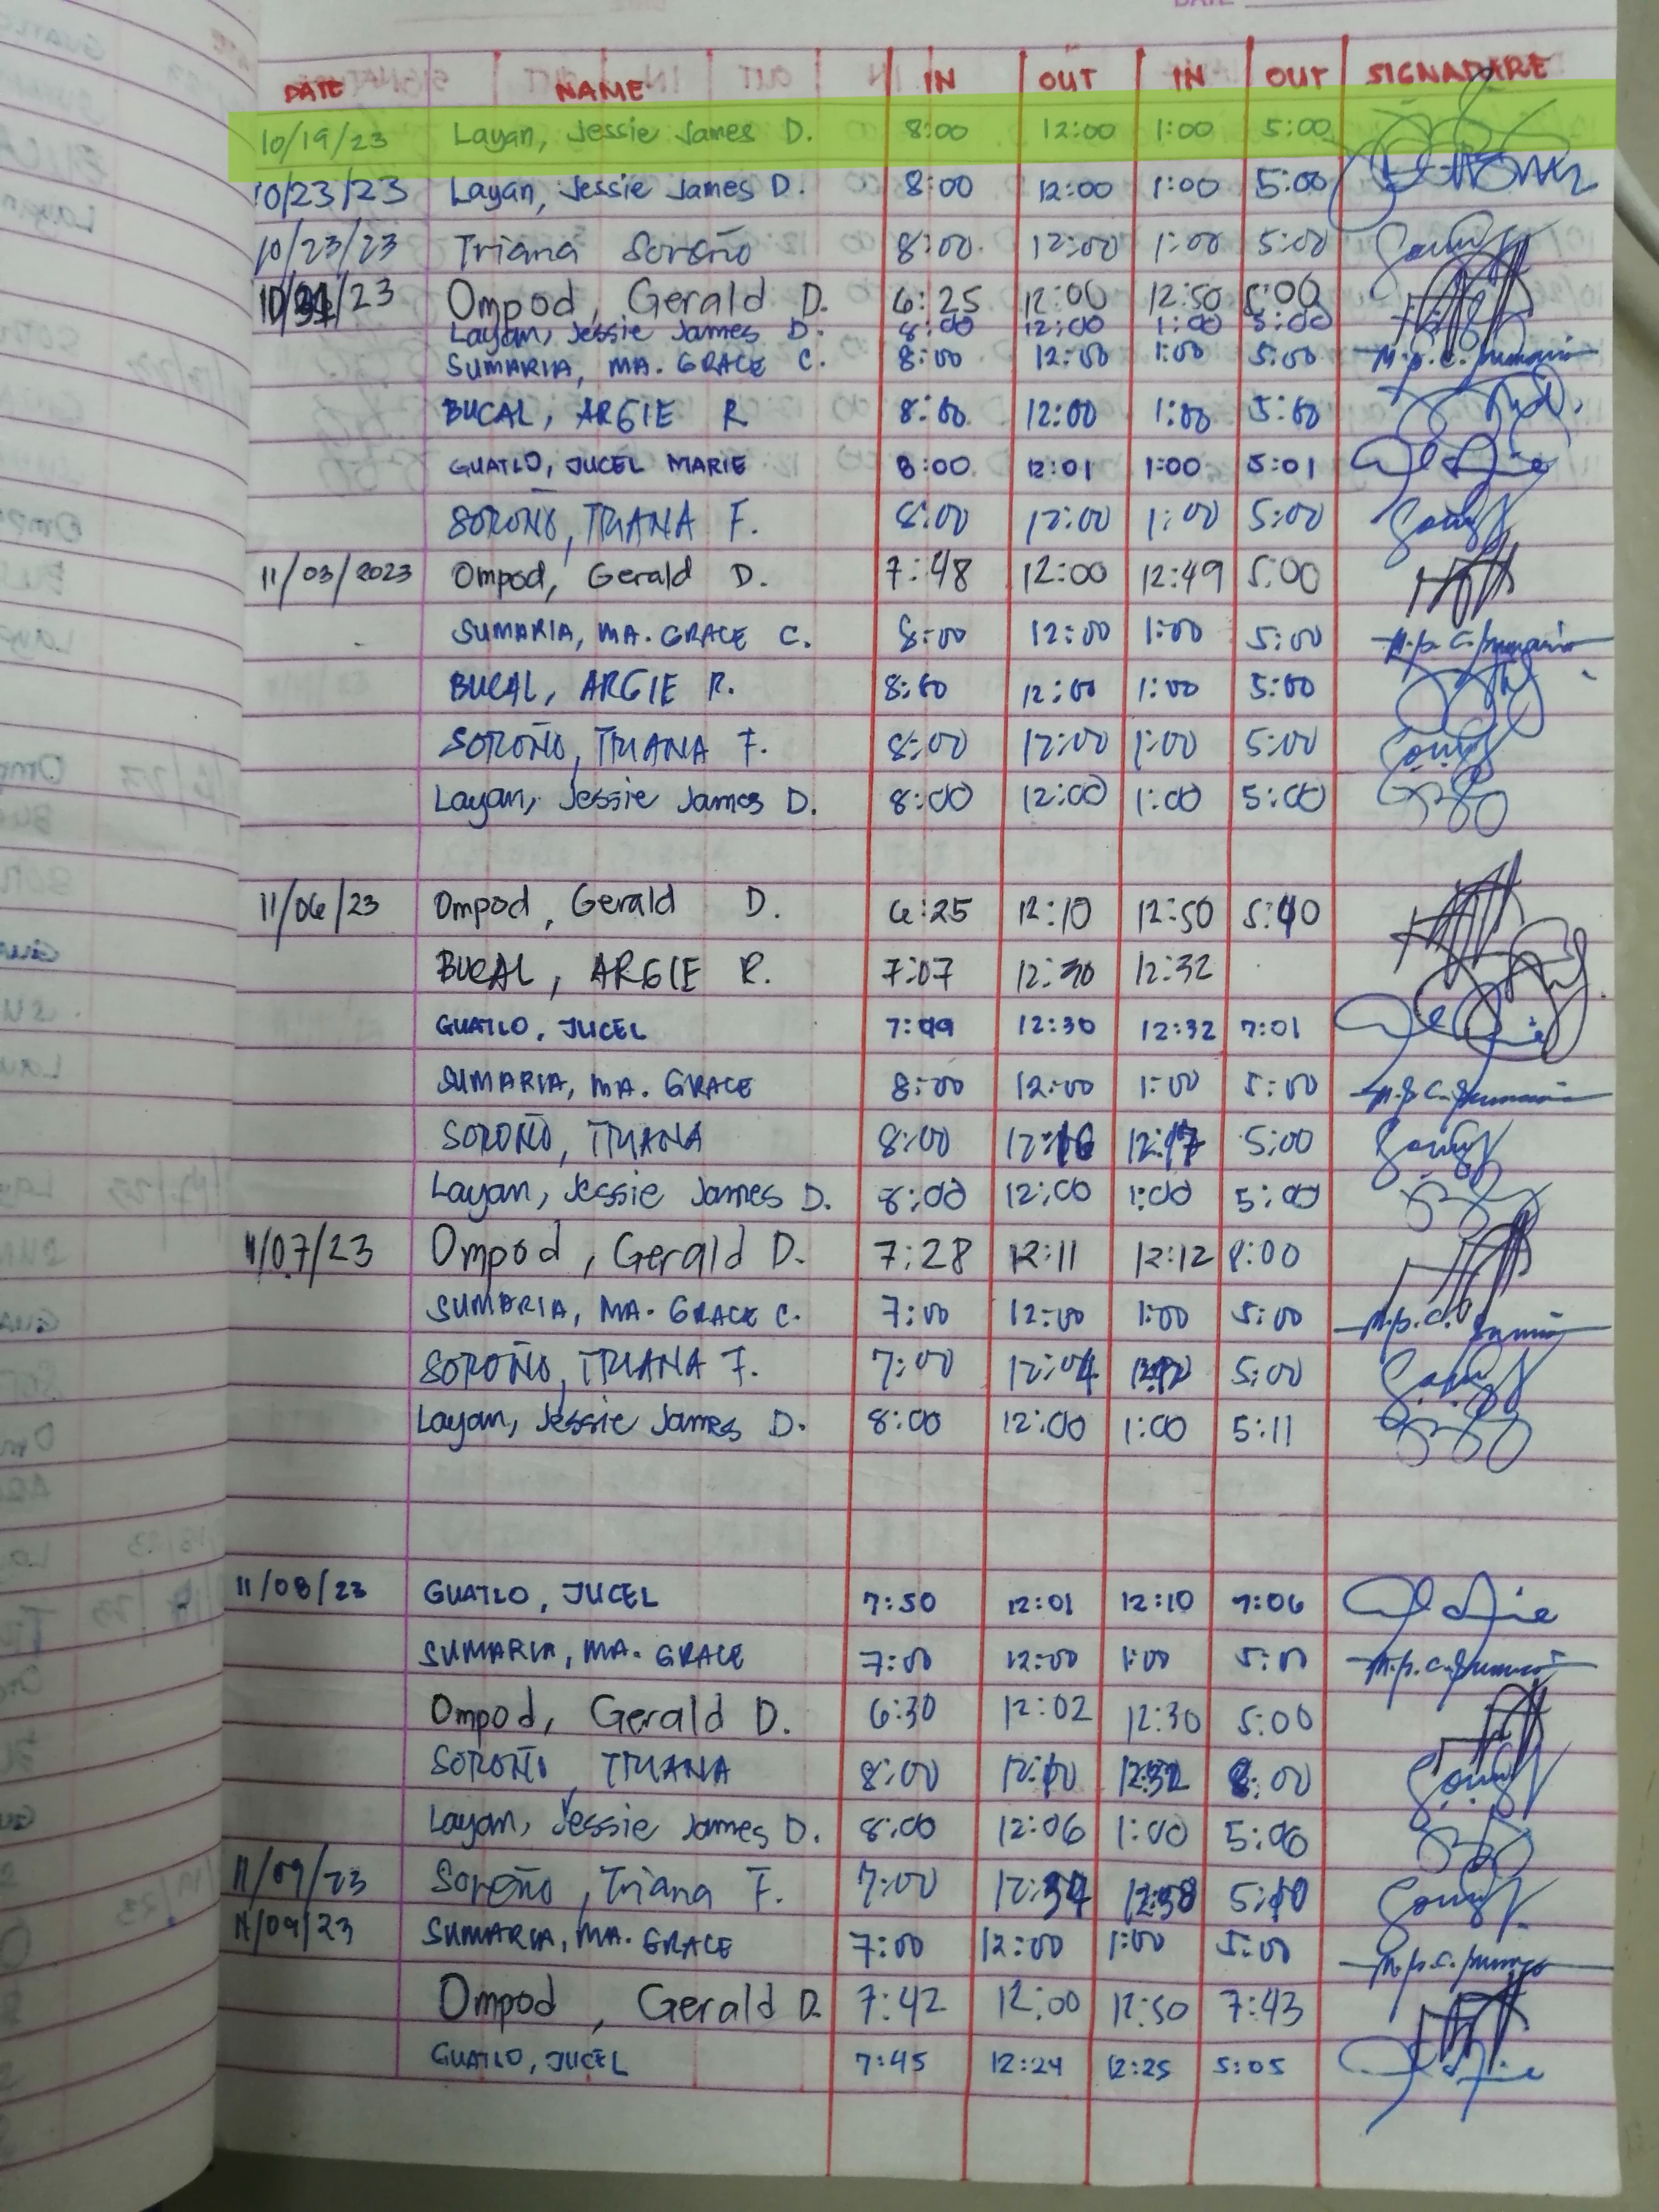 DATE NAME IN OUT IN OUT SIGNADARE
10/19/23 Layan, Jessie James D. 8:00 12:00 1:00 5:00
10/23/23 Layan, Jessie James D. 8:00 12:00 1:00 5:00
10/23/23 Triana Soroño 8:00 12:00 1:00 5:00
10/31/23 Ompod, Gerald D. 6:25 12:00 12:50 5:00
Layan, Jessie James D. 8:00 12:00 1:00 5:00
SUMARIA, MA. GRACE C. 8:00 12:00 1:00 5:00
BUCAL, ARGIE R 8:00 12:00 1:00 5:00
GUATLO, JUCEL MARIE 8:00 12:01 1:00 5:01
SOROÑO, TRIANA F. 8:00 12:00 1:00 5:00
11/03/2023 Ompod, Gerald D. 7:48 12:00 12:49 5:00
SUMARIA, MA. GRACE C. 8:00 12:00 1:00 5:00
BUCAL, ARGIE R. 8:00 12:00 1:00 5:00
SOROÑO, TRIANA F. 8:00 12:00 1:00 5:00
Layan, Jessie James D. 8:00 12:00 1:00 5:00
11/06/23 Ompod, Gerald D. 6:25 12:10 12:50 5:40
BUCAL, ARGIE R. 7:07 12:30 12:32
GUATLO, JUCEL 7:09 12:30 12:32 7:01
SUMARIA, MA. GRACE 8:00 12:00 1:00 5:00
SOROÑO, TRIANA 8:00 12:16 12:17 5:00
Layan, Jessie James D. 8:00 12:00 1:00 5:00
11/07/23 Ompod, Gerald D. 7:28 12:11 12:12 8:00
SUMARIA, MA. GRACE C. 7:00 12:00 1:00 5:00
SOROÑO, TRIANA F. 7:00 12:04 5:00
Layan, Jessie James D. 8:00 12:00 1:00 5:11
11/08/23 GUATLO, JUCEL 7:50 12:01 12:10 7:06
SUMARIA, MA. GRACE 7:00 12:00 1:00 5:00
Ompod, Gerald D. 6:30 12:02 12:30 5:00
SOROÑO, TRIANA 8:00 12:10 12:32 8:00
Layan, Jessie James D. 8:00 12:06 1:00 5:06
11/09/23 Soroño, Triana F. 7:00 12:34 12:38 5:10
11/09/23 SUMARIA, MA. GRACE 7:00 12:00 1:00 5:00
Ompod, Gerald D. 7:42 12:00 12:50 7:43
GUATLO, JUCEL 7:45 12:24 12:25 5:05